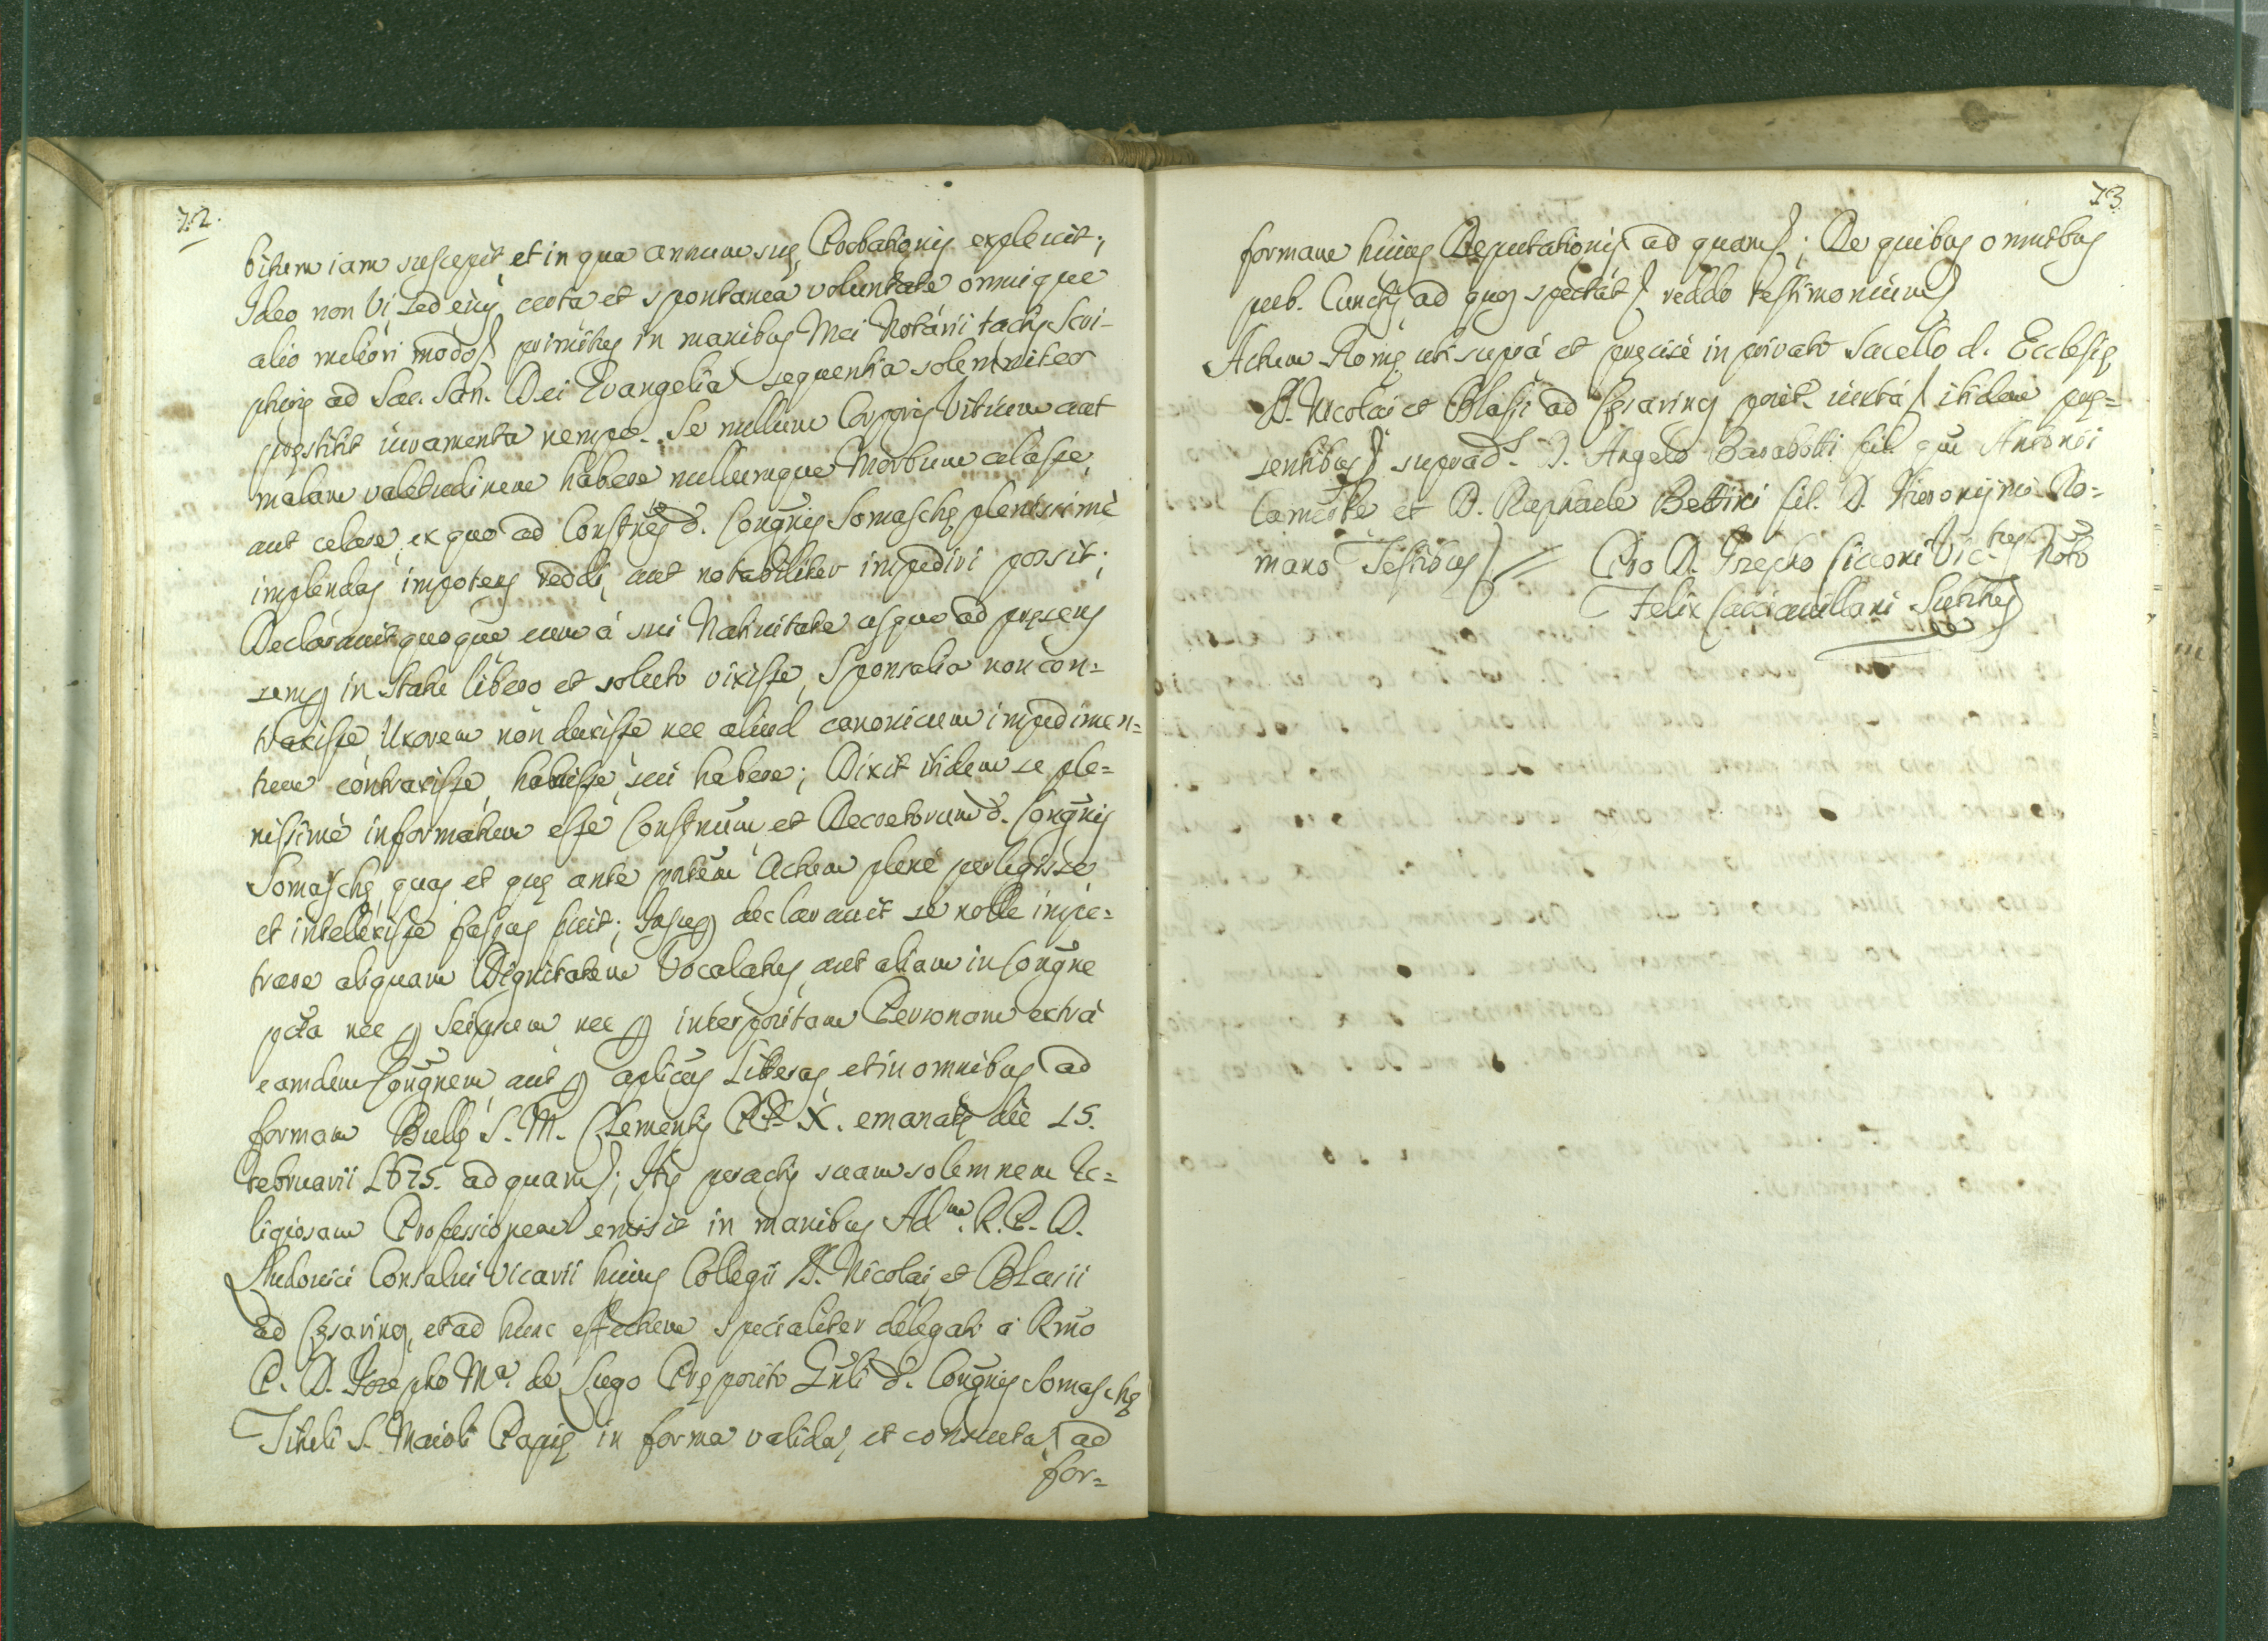 72.
bitum iam suscepit, et in qua annum suę Probationis expleuit;
Ideo non vi sed eius certa et spontanea voluntate omnique
alio meliori modo primitus in manibus Mei Notarii tactis Scri-
pturis ad Sac. San. Dei Evangelia sequentia solemniter
pręstitit iuramenta nempe. Se nullum Corporis Vitium aut
malam valetudinem habere nullumque Morbum celasse,
aut celare, ex quo ad Constnes d. Congnis Somaschę plenissimè
implendas impotens reddi, aut notabiliter impediri possit;
Declarauit quoque eum à sui Natiuitate usque ad pręsens
semp in statu libero et soluto vixisse, Sponsalia non con=
traxisse, Uxorem non duxisse nec aliud canonicum impedimen=
tum contraxisse, habuisse, seu habere; Dixit itidem se ple=
nissimè informatum esse Constnum, et Decretorum d. Congnis
Somaschę, quas et quę antè pntem Actum plenè perlegisse
et intellexisse fassus fuit; Insup declarauit se nolle impe=
trare aliquam Dignitatem Vocalatus, aut aliam in Congne
pcta nec p seipsum nec p interpositam Personam extrà
eamdem Congnem, aut p aplicas Literas, et in omnibus ad
formam Bullę S. M. Clementis PP. X. emanatę die 15.
Februarii 1675. ad quam; Itis peractis suam solemnem Re=
ligiosam Professionem emisit in manibus Adm. R. P. D.
Ludouici Consalui Vicarii huius Collegii SS. Nicolai, et Blasii
ad Cęsarinos, et ad hunc effectum specialiter delegati à Rmo
P. D. Josepho Ma. de Lugo Pręposito Gnli d. Congnis Somaschę
Tituli S. Maioli Papię in forma valida, et consueta, ad
for=
73
formam huius Deputationis ad quam; De quibus omnibus
pub. Cunctis ad quos spectat reddo testimonium
Actum Romę uti suprà et pręcisè in priuato Sacello d. Ecclesię
SS. Nicolai et Blasii ad Cęsarinos posit. iuxta itidem prę=
sentibus supradd. D. Angelo Barabotti fil. qm Antonii
Camerte et D. Raphaele Bettini fil. D. Hieronijmi Ro=
mano Testibus = Pro D. Josepho Cicconi Victrys Noto
Felix Caccianillani Subttus